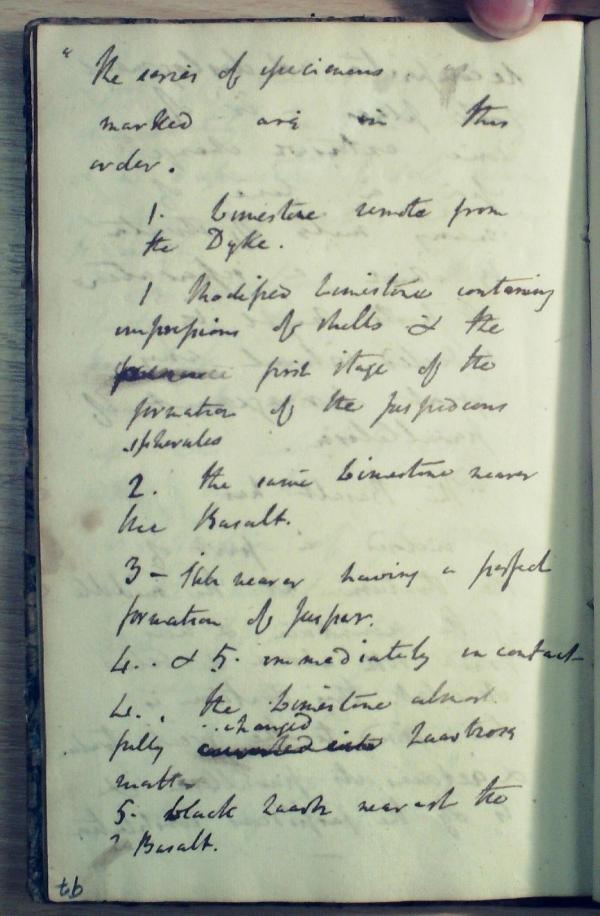 the series of specimens
marked are in this
order.
1. Limestone remote from
the Dyke.
1 Modified Limestone containing
impressions of shells & the
first stage of the
formation of the Jaspideous
spherules
2. the same Limestone nearer
the Basalt.
3 - still nearer having a perfect
formation of Jasper.
4. & 5. immediately in contact
4. the Limestone almost
changed
fully converted into Quartzose
matter
5. black Quartz nearest the
Basalt.